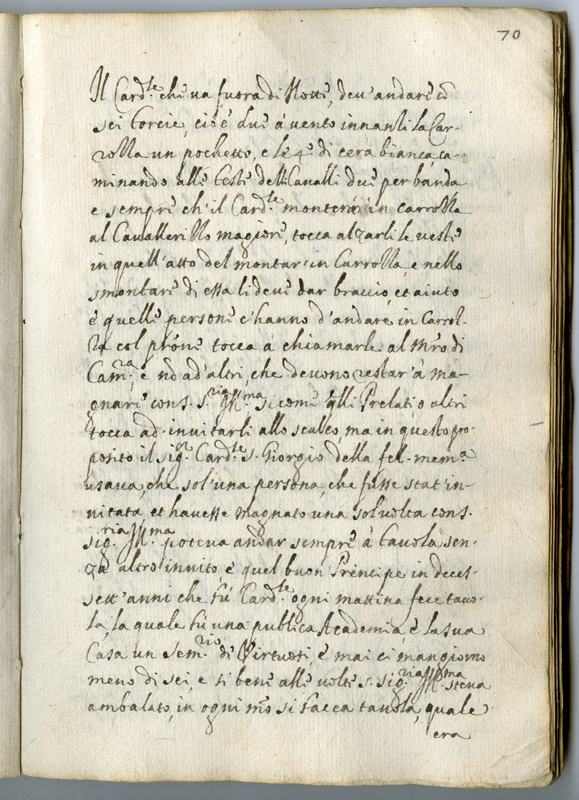 70
Il Card.le che va fuora di Notte, deu'andare cō
sei torcie, cioè due à vento innanti la Car-
rozza un pochetto, e le 4 di cera bianca, ca-
minando alle teste delli Cavalli due per banda
e sempre ch'il Card.le monterà in carrozza
al Cavallerizzo magiore, tocca alzarli le veste
in quell'atto del montar' in Carrozza e nello
smontare di essa li deve dar braccio, et aiuto
e quelle persone c'hanno d'andare in Carroz-
za col prōne tocca à chiamarle al Mr̄o di
Cam.ra e nō ad'altri, che devono restar' à ma-
gnare con S. S.ria Ill.ma si come q̄lli Prelati o altri
tocca ad invitarli allo scalco, ma in questo pro-
posito il sig.or Card.le S. Giorgio della fel. mem.a
usava, che sol'una persona, che fusse stat'in-
vitata et havesse magnato una sol volta con S.
Sig.ria Ill.ma poteva andar sempre à tavola sen-
za altro invito, e quel buon Principe in deces-
sett'anni che fù Card.le ogni mattina fece tavo-
la, la quale fù una publica Academia e la sua
Casa un Sem.rio di Virtuosi, e mai ci mangiorno
meno di sei, e si bene alle volte S. Sig.ria Ill.ma steva
ambalato, in ogni mō si facea tavola, quale
era